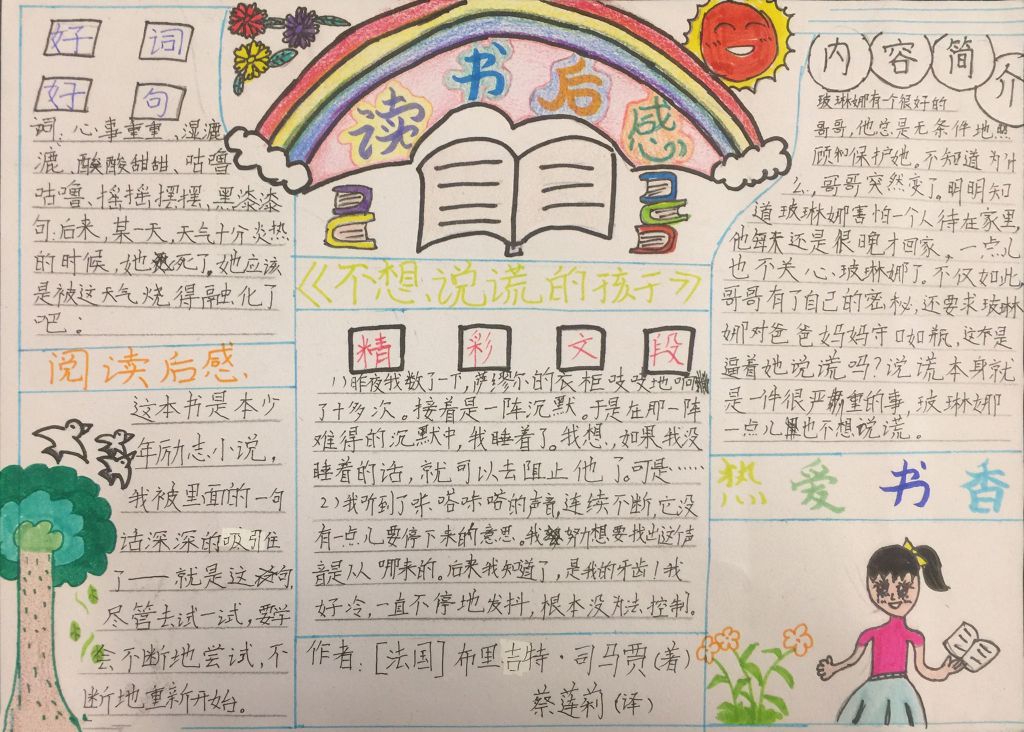 读书后感
好词
好句
词：心事重重、湿漉
漉、酸酸甜甜、咕噜
咕噜、摇摇摆摆、黑漆漆
句：后来，某一天，天气十分炎热
的时候，她死了。她应该
是被这天气烧得融化了
吧！
阅读后感
这本书是本少
年励志小说，
我被里面的一句
话深深的吸引住
了——就是这句，
尽管去试一试，要学
会不断地尝试，不
断地重新开始。
《不想说谎的孩子》
精彩文段
1）昨夜我数了一下，萨缪尔的衣柜吱吱地响
了十多次。接着是一阵沉默。于是在那一阵
难得的沉默中，我睡着了。我想，如果我没
睡着的话，就可以去阻止他了。可是……
2）我听到了咔嗒咔嗒的声音，连续不断，它没
有一点儿要停下来的意思。我努力想要找出这个声
音是从哪来的。后来我知道了，是我的牙齿！我
好冷，一直不停地发抖，根本没方法控制。
作者：[法国]布里吉特·司马贾（著）
蔡莲莉（译）
内容简介
玻琳娜有一个很好的
哥哥，他总是无条件地照
顾和保护她。不知道为什
么，哥哥突然变了。明明知
道玻琳娜害怕一个人待在家里，
他每天还是很晚才回家，一点儿
也不关心玻琳娜了。不仅如此，
哥哥有了自己的密秘，还要求玻琳
娜对爸爸妈妈守口如瓶，这不是
逼着她说谎吗？说谎本身就
是一件很严重的事，玻琳娜
一点儿也不想说谎。
热爱书香